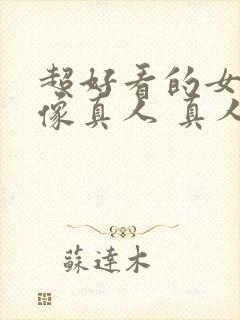 超好看的女
像真人 真人
蘇達木